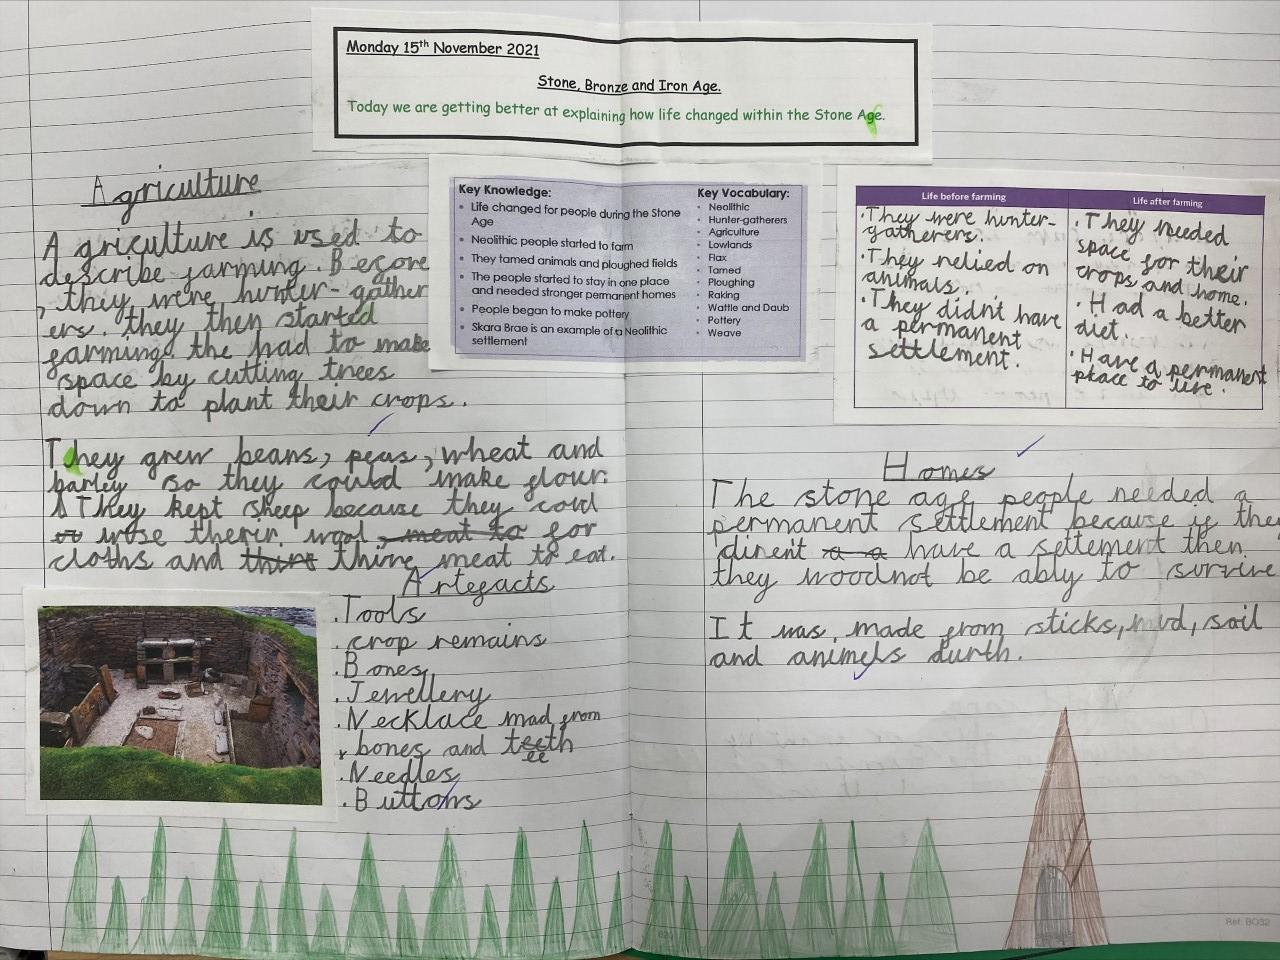 Monday 15th November 2021
Stone, Bronze and Iron Age.
Today we are getting better at explaining how life changed within the Stone Age.
Agriculture
Agriculture is used to
describe farming. Before
, they were hunter-gather
ers. they then started
farming. the had to make
space by cutting trees
down to plant their crops.
They grew beans, peas, wheat and
barley so they could make flour.
They kept sheep because they cold
wose therir wool, meat to for
cloths and thire meat to eat.
Artefacts
. Tools
. crop remains
. Bones
. Jewellery
. Necklace mad from
bones and teeth
ee
. Needles
. Buttons
Key Knowledge:
• Life changed for people during the Stone
Age
• Neolithic people started to farm
• They tamed animals and ploughed fields
• The people started to stay in one place
and needed stronger permanent homes
• People began to make pottery
• Skara Brae is an example of a Neolithic
settlement
Key Vocabulary:
• Neolithic
• Hunter-gatherers
• Agriculture
• Lowlands
• Flax
• Tamed
• Ploughing
• Raking
• Wattle and Daub
• Pottery
• Weave
Life before farming
• They were hunter-
gatherers.
• They relied on
animals.
• They didn't have
a permanent
settlement.
Life after farming
• They needed
space for their
crops and home.
• Had a better
diet.
• Have a permanent
place to live.
Homes
The stone age people needed a
permanent settlement because if the
dirent a a have a settement then
they woodnot be ably to survive
It was made from sticks, mud, soil
and animels durth.
Ref: BO32